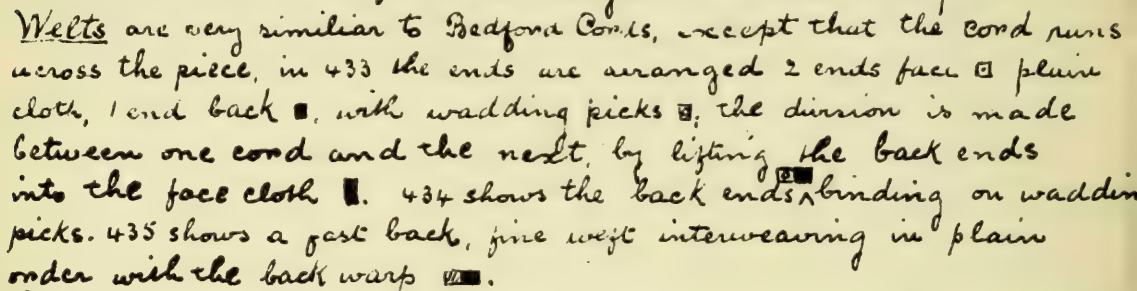 Welts are very similiar to Bedford Cords, except that the cord runs
across the piece, in 433 the ends are arranged 2 ends face plain
cloth, 1 end back , with wadding picks ; the division is made
between one cord and the next, by lifting the back ends
into the face cloth . 434 shows the back ends ^ binding on waddin
picks. 435 shows a fast back, fine weft interweaving in plain
order with the back warp .